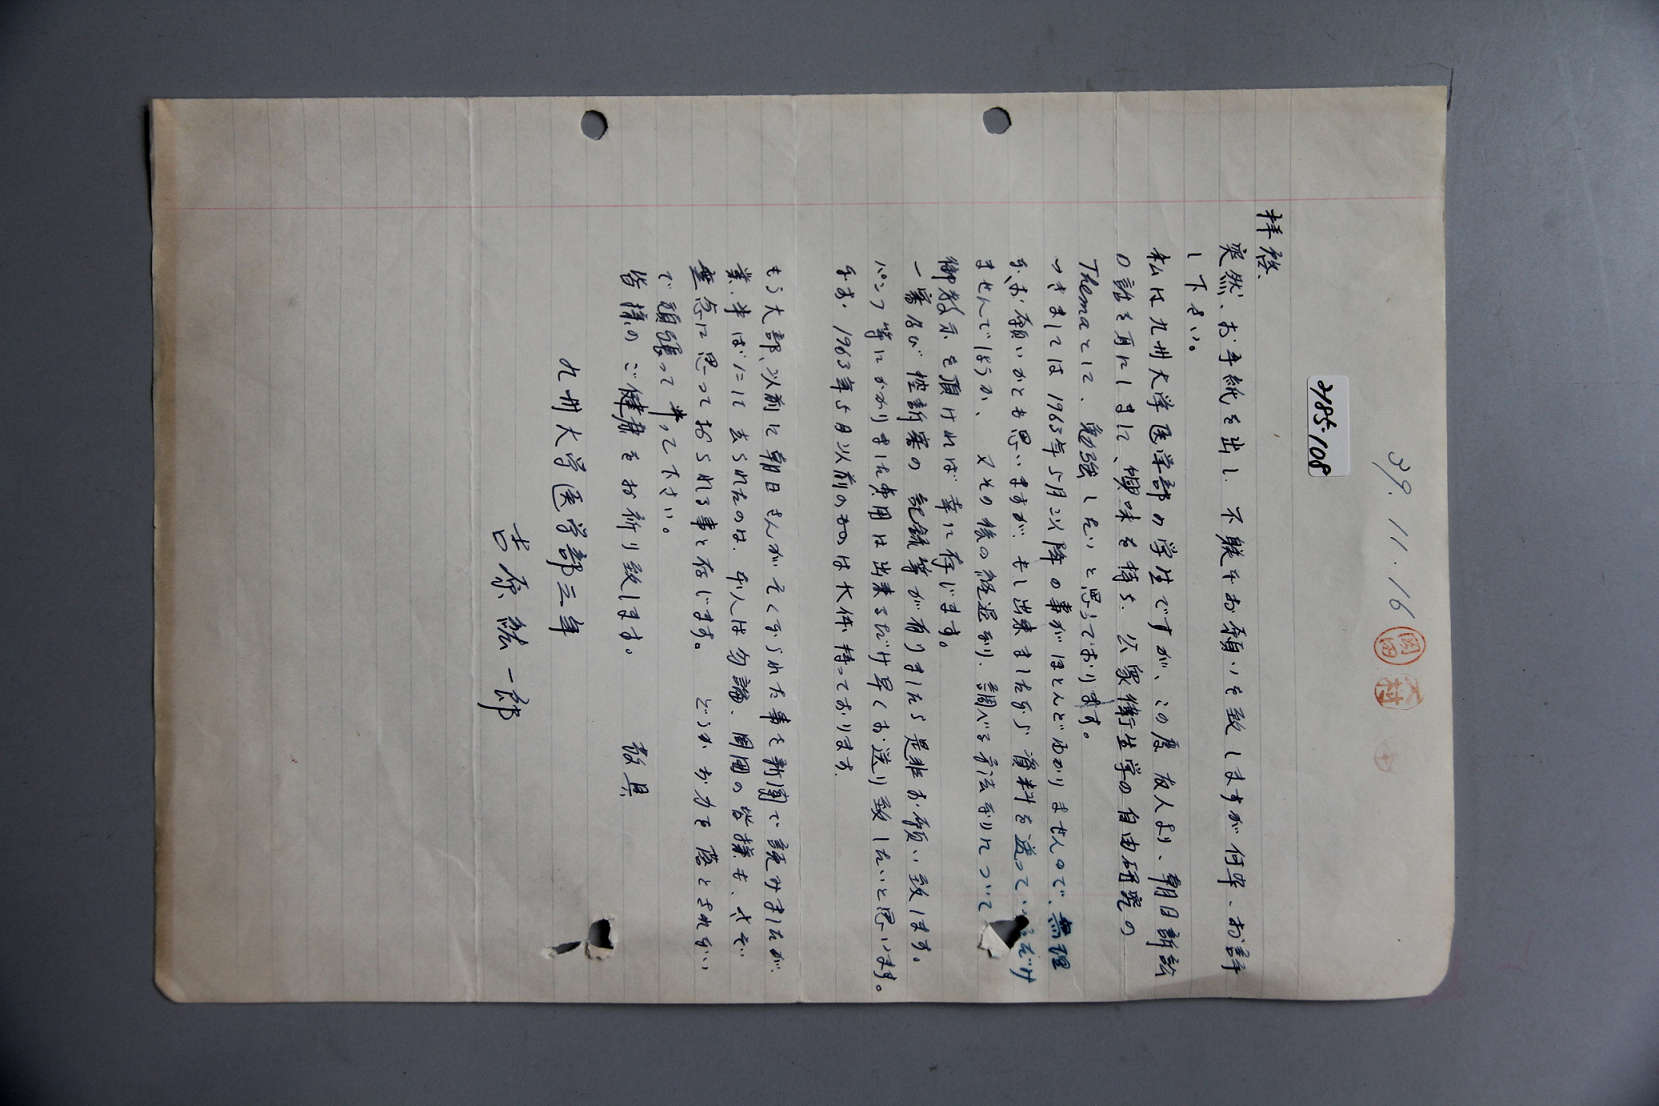 39.11.16
岡田
木村
2185-108
拝啓、
突然、お手紙を出し、不躾なお願いを致しますが何卒、お許
し下さい。
私は九州大学医学部の学生ですが、この度 友人より、朝日訴訟
の話を耳にしまして、興味を持ち、公衆衛生学の自由研究の
Themaとして、勉強したいと思っております。
つきましては 1963年5月以降の事がほとんどわかりませんので、無理
なお願いかとも思いますが、もし出来ましたなら 資料を送って だけ
ませんでしょうか、又その後の経過なり、調べる方法なりについて
御教示を頂ければ幸に存じます。
一審及び控訴審の記録等が有りましたら是非お願い致します。
パンフ等にかかりました費用は出来るだけ早くお送り致したいと思います。
なお、1963年5月以前のものは大体持っております。
もう大部、以前に朝日さんがなくなられた事を新聞で読みましたが、
業、半ばにして去られたのは、本人は勿論、周囲の皆様も、さぞ
残念に思っておられる事と存じます。どうか お力を落とされない
で頑張って 下さい。
皆様のご健康をお祈り致します。
敬具
九州大学医学部三年
吉原 一郎